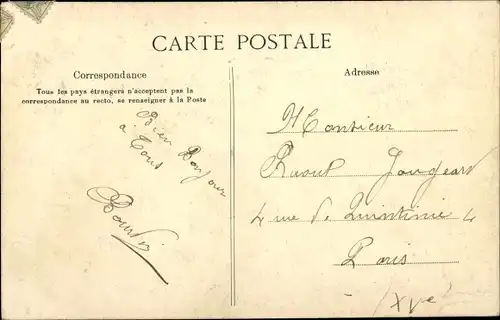 CARTE POSTALE
Correspondance
Tous les pays étrangers n'acceptent pas la
correspondance au recto, se renseigner à la Poste
Bien Bonjour
à Tous
Adresse
Monsieur
Raoul Jougeard
4 rue de Quintinie 4
Paris
XVe